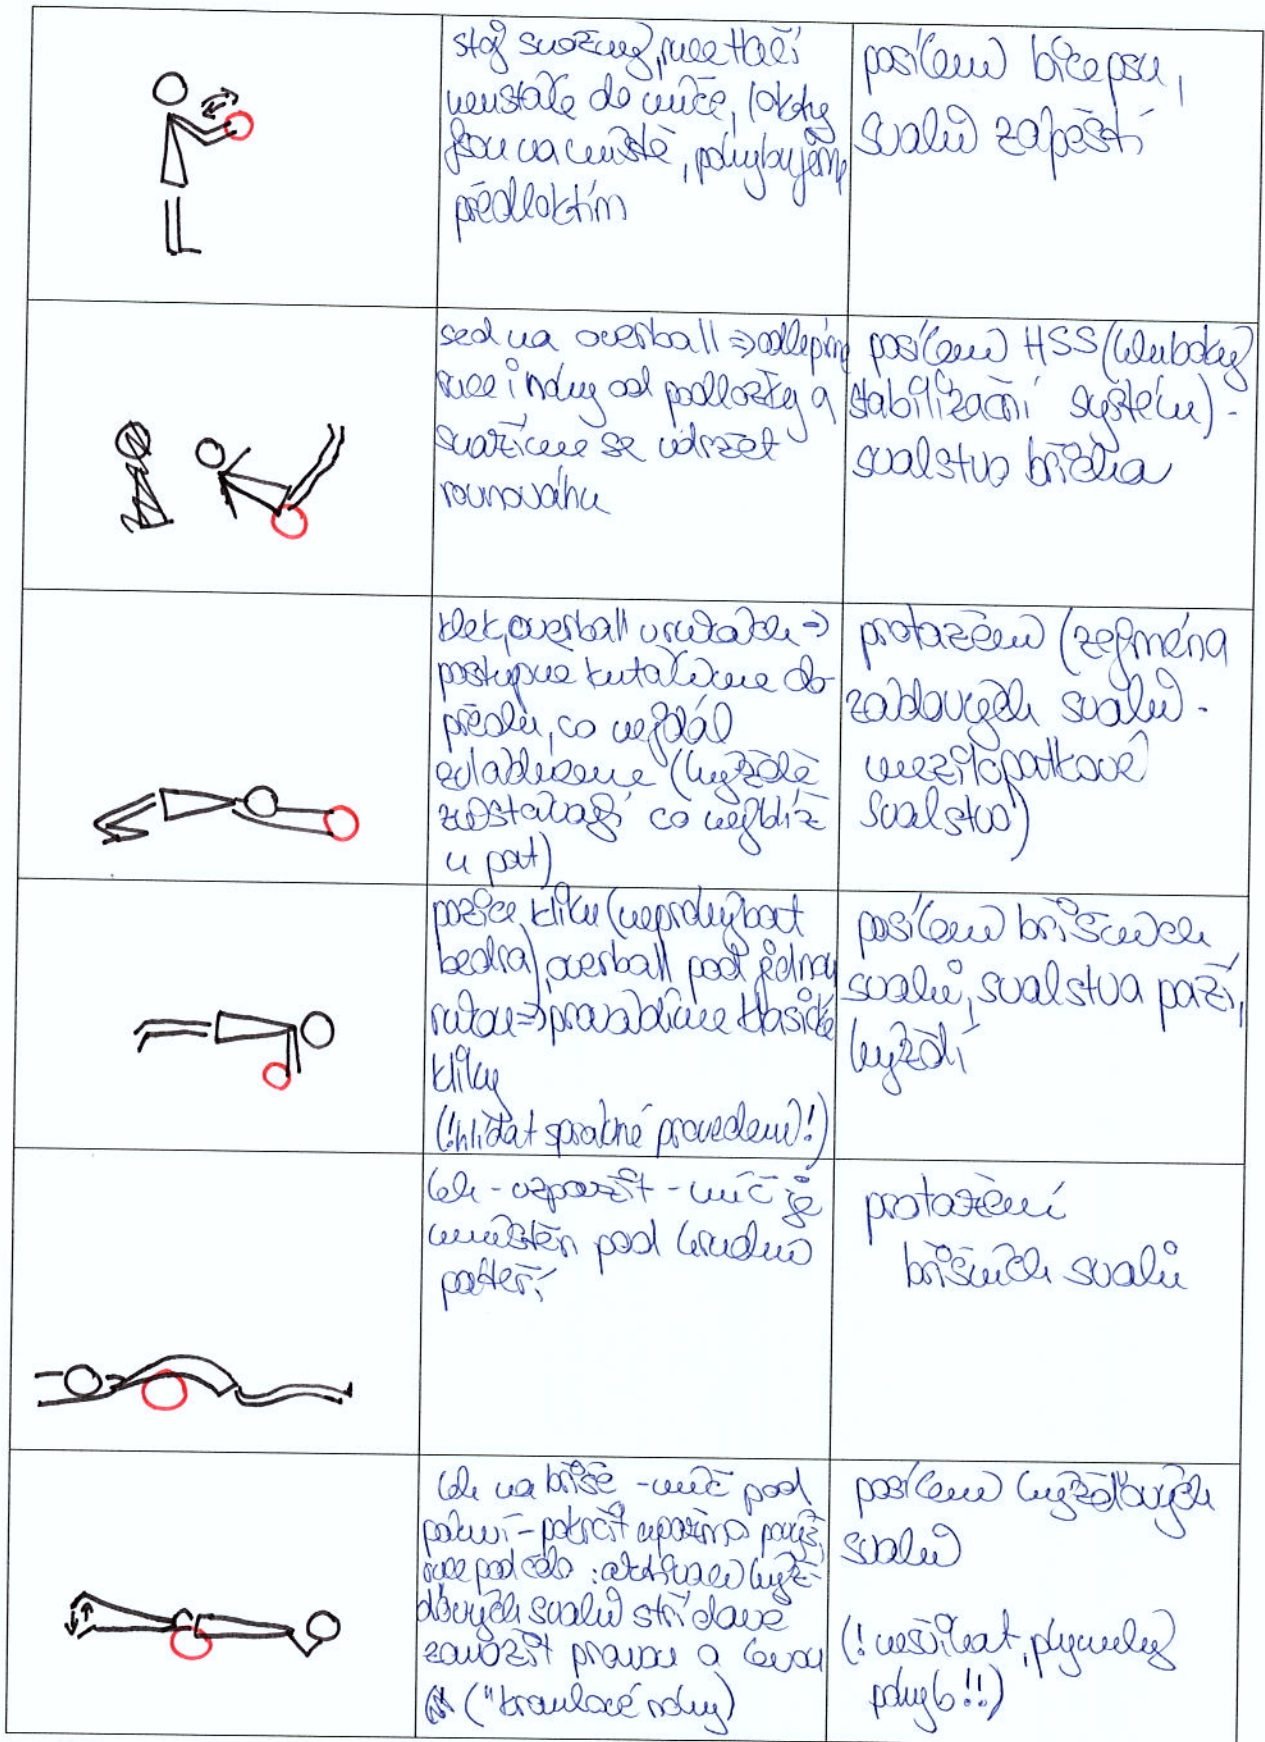 stoj snožný, ruce tlačí
neustále do míče, lokty
jsou na místě, pohybujeme
předloktím
posílení bicepsu,
svalů zápěstí
sed na overball => odlepíme
ruce i nohy od podložky a
snažíme se udržet
rovnováhu
posílení HSS (hluboký
stabilizační systém) -
svalstvo břicha
klek, overball v rukách =>
postupně kutálíme do
předu, co nejdál
zvládneme (hýždě
zůstávají co nejblíž
u pat)
protažení (zejména
zádových svalů -
mezilopatkové
svalstvo)
pozice kliku (neprohýbat
bedra), overball pod jednou
rukou => provádíme klasické
kliky
(!hlídat správné provedení!)
posílení břišních
svalů, svalstva paží,
hýždí
leh - vzpažit - míč je
umístěn pod hrudní
páteří
protažení
břišních svalů
leh na břiše - míč pod
pánví - pokrčit upažmo
ruce pod čelo : aktivace hýž-
ďových svalů střídavě
zanožit pravou a levou
("kraulové nohy)
posílení hýžďových
svalů
(! nešvihat, plynulý
pohyb!!)